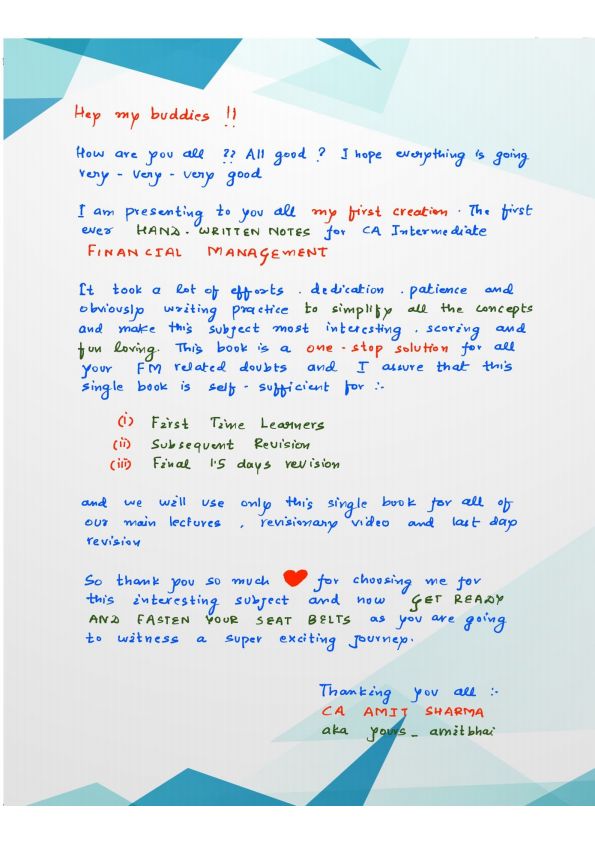 Hey my buddies !!
How are you all ?? All good ? I hope everything is going
very - very - very good
I am presenting to you all my first creation . The first
ever HAND - WRITTEN NOTES for CA Intermediate
FINANCIAL MANAGEMENT
It took a lot of efforts , dedication , patience and
obviously writing practice to simplify all the concepts
and make this subject most interesting , scoring and
fun loving. This book is a one - stop solution for all
your FM related doubts and I assure that this
single book is self - sufficient for :-
(i) First Time Learners
(ii) Subsequent Revision
(iii) Final 1.5 days revision
and we will use only this single book for all of
our main lectures , revisionary video and last day
revision
So thank you so much ❤ for choosing me for
this interesting subject and now GET READY
AND FASTEN YOUR SEAT BELTS as you are going
to witness a super exciting journey.
Thanking you all :-
CA AMIT SHARMA
aka yours _ amitbhai